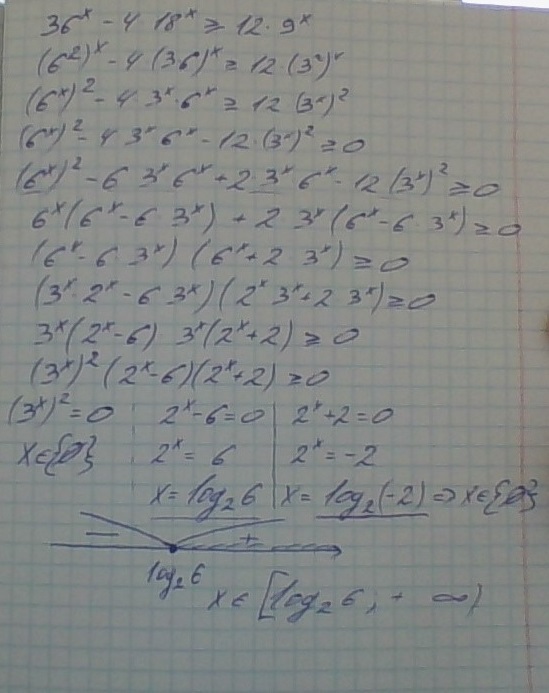 36ˣ - 4 18ˣ ≥ 12 · 9ˣ
(6²)ˣ - 4 (36)ˣ ≥ 12 · (3²)ˣ
(6ˣ)² - 4 · 3ˣ · 6ˣ ≥ 12 (3ˣ)²
(6ˣ)² - 4 3ˣ 6ˣ - 12 · (3ˣ)² ≥ 0
(6ˣ)² - 6 3ˣ 6ˣ + 2 · 3ˣ 6ˣ - 12 (3ˣ)² ≥ 0
6ˣ (6ˣ - 6 3ˣ) + 2 3ˣ (6ˣ - 6 3ˣ) ≥ 0
(6ˣ - 6 · 3ˣ) (6ˣ + 2 3ˣ) ≥ 0
(3ˣ · 2ˣ - 6 3ˣ) (2ˣ 3ˣ + 2 3ˣ) ≥ 0
3ˣ (2ˣ - 6) 3ˣ (2ˣ + 2) ≥ 0
(3ˣ)² (2ˣ - 6) (2ˣ + 2) ≥ 0
(3ˣ)² = 0 2ˣ - 6 = 0 2ˣ + 2 = 0
x ∈ {∅} 2ˣ = 6 2ˣ = -2
x = log₂ 6 x = log₂ (-2) => x ∈ {∅}
- +
log₂ 6
x ∈ [log₂ 6, + ∞)